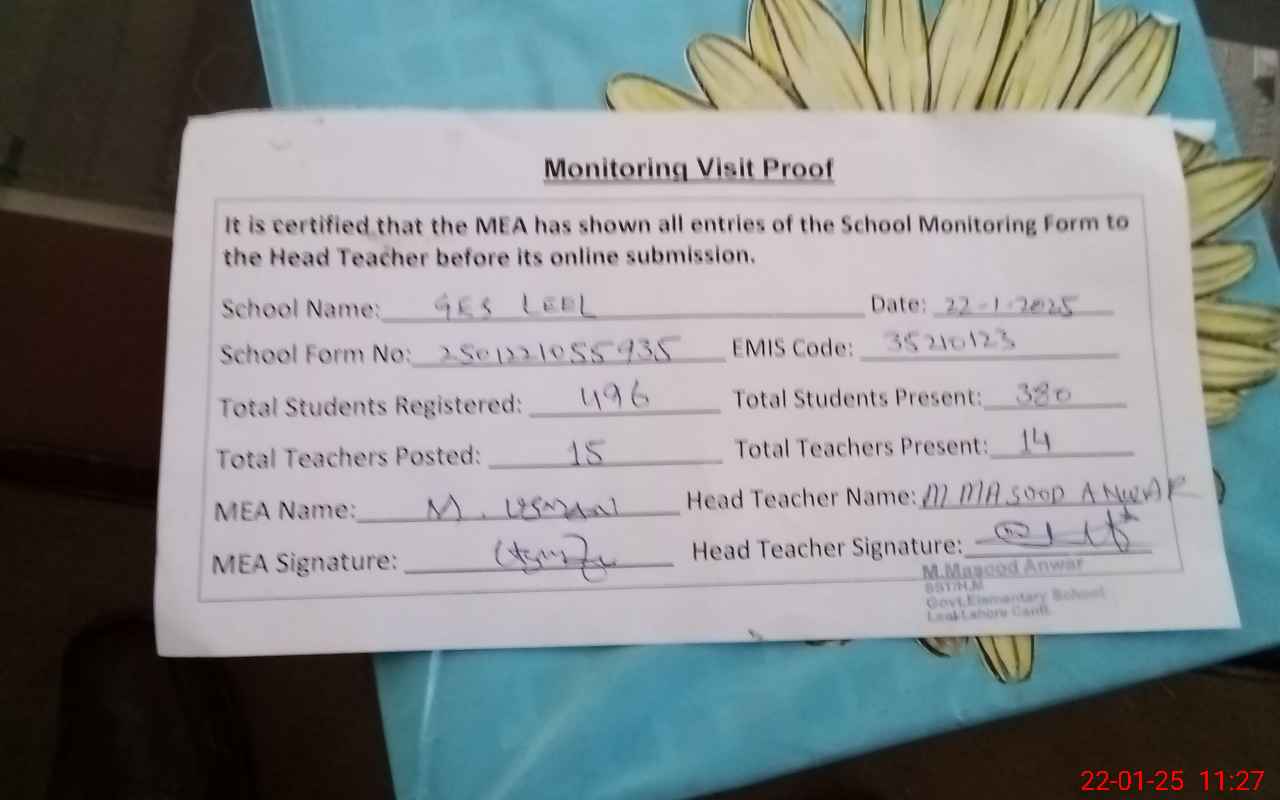 Monitoring Visit Proof
It is certified that the MEA has shown all entries of the School Monitoring Form to
the Head Teacher before its online submission.
School Name: GES LEEL Date: 22-1-2025
School Form No: 2501221055935 EMIS Code: 35210123
Total Students Registered: 496 Total Students Present: 380
Total Teachers Posted: 15 Total Teachers Present: 14
MEA Name: M. USMAN Head Teacher Name: M MASOOD ANWAR
MEA Signature: Head Teacher Signature:
M.Masood Anwar
SST/H.M
Govt.Elementary School
Lahore Cantt.
22-01-25 11:27